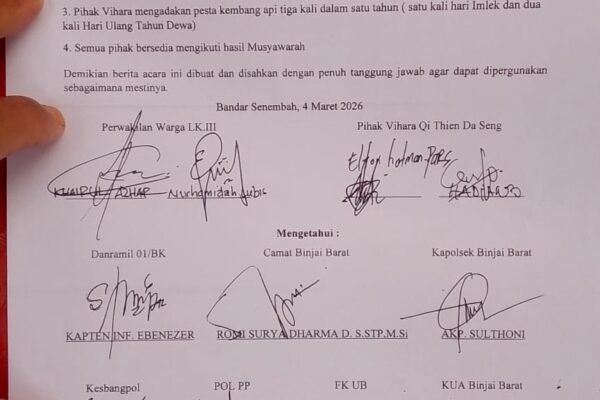 3. Pihak Vihara mengadakan pesta kembang api tiga kali dalam satu tahun ( satu kali hari Imlek dan dua
kali Hari Ulang Tahun Dewa)
4. Semua pihak bersedia mengikuti hasil Musyawarah
Demikian berita acara ini dibuat dan disahkan dengan penuh tanggung jawab agar dapat dipergunakan
sebagaimana mestinya.
Bandar Senembah, 4 Maret 2026
Perwakilan Warga LK.III Pihak Vihara Qi Thien Da Seng
KHAIRUL AZHAR Nurhamidah Lubis
Mengetahui :
Danramil 01/BK Camat Binjai Barat Kapolsek Binjai Barat
KAPTEN INF. EBENEZER ROMI SURYA DHARMA D. S.STP,M.Si AKP. SULTHONI
Kesbangpol POL PP FK UB KUA Binjai Barat